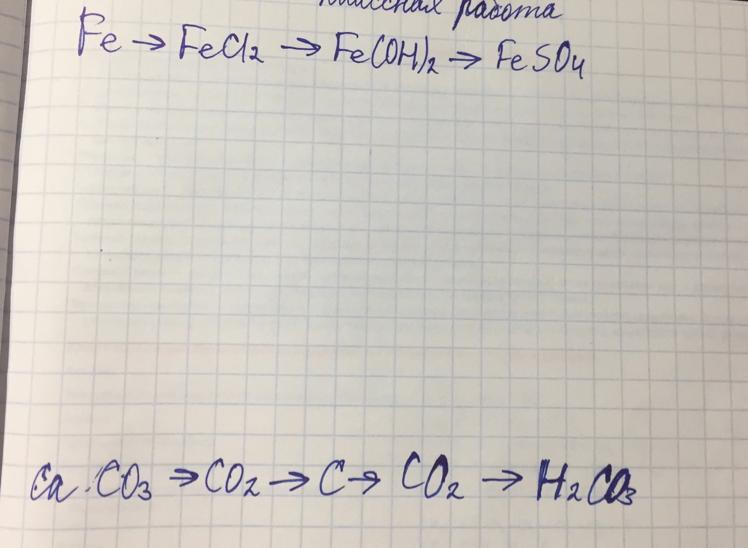 Классная работа
Fe → FeCl2 → Fe(OH)2 → FeSO4
CaCO3 → CO2 → C → CO2 → H2CO3